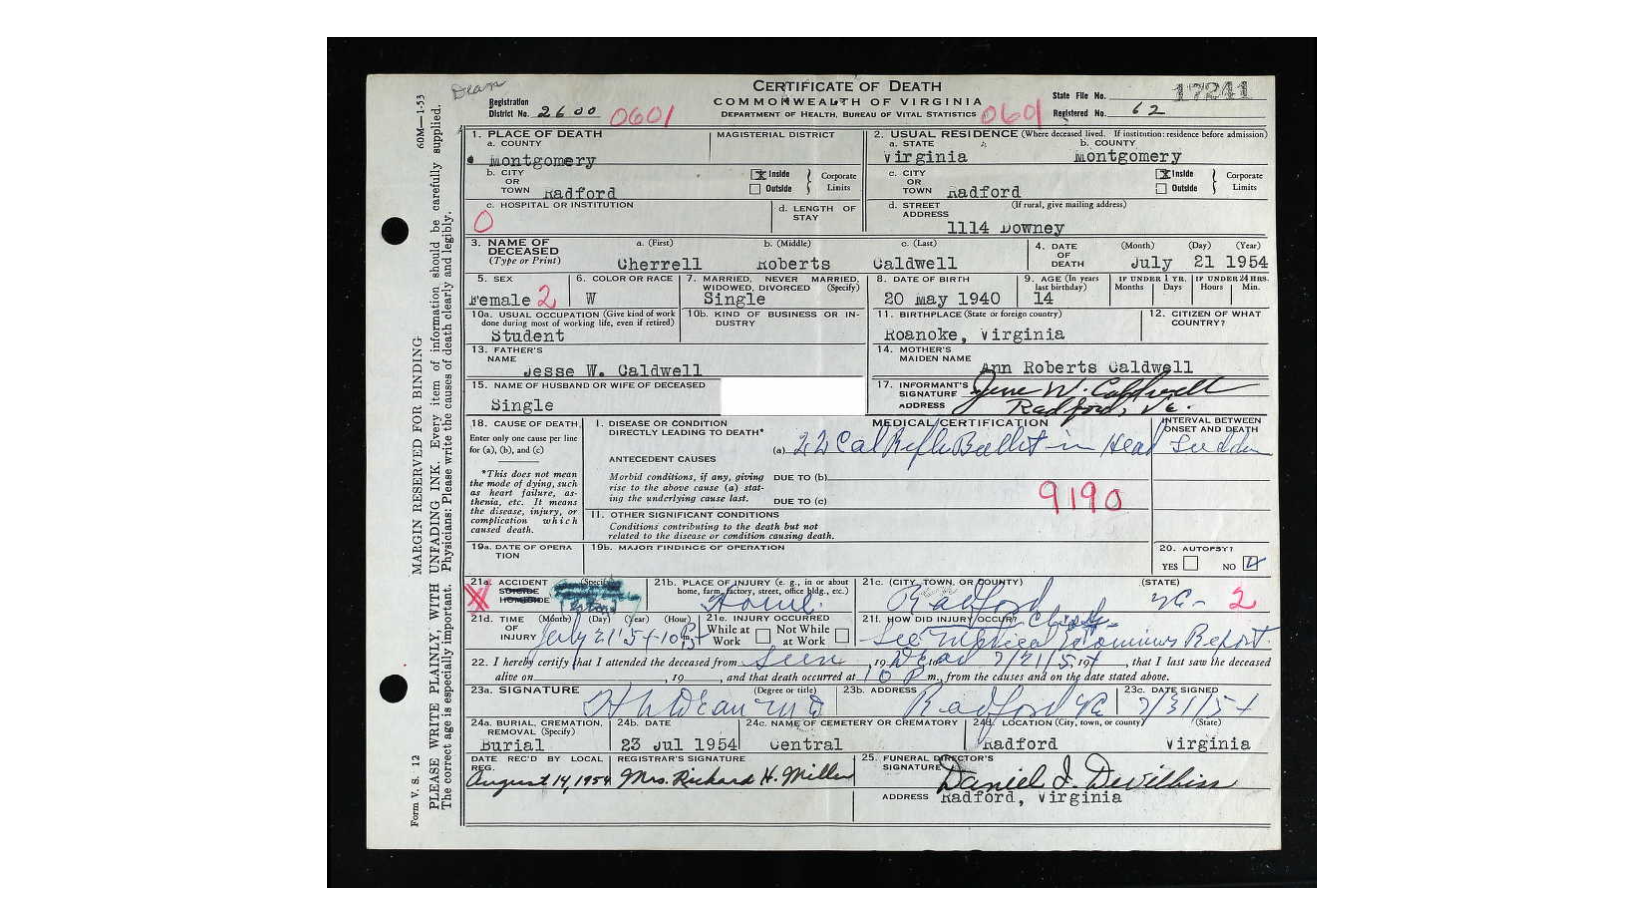 Dean
CERTIFICATE OF DEATH
COMMONWEALTH OF VIRGINIA
DEPARTMENT OF HEALTH, BUREAU OF VITAL STATISTICS
Registration District No. 2600 0601
0601
State File No. 17241
Registered No. 62
1. PLACE OF DEATH
a. COUNTY
Montgomery
MAGISTERIAL DISTRICT
b. CITY OR TOWN Radford
X Inside
Outside
Corporate Limits
c. HOSPITAL OR INSTITUTION
0
d. LENGTH OF STAY
2. USUAL RESIDENCE (Where deceased lived. If institution: residence before admission)
a. STATE
Virginia
b. COUNTY
Montgomery
c. CITY OR TOWN Radford
X Inside
Outside
Corporate Limits
d. STREET ADDRESS (If rural, give mailing address)
1114 Downey
3. NAME OF DECEASED (Type or Print)
a. (First) b. (Middle) c. (Last)
Cherrell Roberts Caldwell
4. DATE OF DEATH (Month) (Day) (Year)
July 21 1954
5. SEX
Female 2
6. COLOR OR RACE
W
7. MARRIED, NEVER MARRIED, WIDOWED, DIVORCED (Specify)
Single
8. DATE OF BIRTH
20 May 1940
9. AGE (In years last birthday)
14
IF UNDER 1 YR. Months Days
IF UNDER 24 HRS. Hours Min.
10a. USUAL OCCUPATION (Give kind of work done during most of working life, even if retired)
Student
10b. KIND OF BUSINESS OR INDUSTRY
11. BIRTHPLACE (State or foreign country)
Roanoke, Virginia
12. CITIZEN OF WHAT COUNTRY?
13. FATHER'S NAME
Jesse W. Caldwell
14. MOTHER'S MAIDEN NAME
Ann Roberts Caldwell
15. NAME OF HUSBAND OR WIFE OF DECEASED
Single
17. INFORMANT'S SIGNATURE Jesse W. Caldwell
ADDRESS Radford, Va.
18. CAUSE OF DEATH
Enter only one cause per line for (a), (b), and (c)
*This does not mean the mode of dying, such as heart failure, asthenia, etc. It means the disease, injury, or complication which caused death.
MEDICAL CERTIFICATION
INTERVAL BETWEEN ONSET AND DEATH
I. DISEASE OR CONDITION DIRECTLY LEADING TO DEATH*
(a) 22 Cal Rifle Bullet in Head Sudden
ANTECEDENT CAUSES
Morbid conditions, if any, giving rise to the above cause (a) stating the underlying cause last.
DUE TO (b)
DUE TO (c)
9190
II. OTHER SIGNIFICANT CONDITIONS
Conditions contributing to the death but not related to the disease or condition causing death.
19a. DATE OF OPERATION
19b. MAJOR FINDINGS OF OPERATION
20. AUTOPSY?
YES NO
21a. ACCIDENT SUICIDE HOMICIDE (Specify)
X
21b. PLACE OF INJURY (e. g., in or about home, farm, factory, street, office bldg., etc.)
Home.
21c. (CITY, TOWN, OR COUNTY) (STATE)
Radford Va- 2
21d. TIME OF INJURY (Month) (Day) (Year) (Hour)
July 21 '54-10 P
21e. INJURY OCCURRED
While at Work
Not While at Work
21f. HOW DID INJURY OCCUR?
See Medical Examiners Report.
22. I hereby certify that I attended the deceased from Seen, 19 Dead, to 7/21/54, 19 , that I last saw the deceased
alive on , 19 , and that death occurred at 10 P m., from the causes and on the date stated above.
23a. SIGNATURE (Degree or title)
Dean MD
23b. ADDRESS
Radford Va
23c. DATE SIGNED
7/31/54
24a. BURIAL, CREMATION, REMOVAL (Specify)
Burial
24b. DATE
23 Jul 1954
24c. NAME OF CEMETERY OR CREMATORY
Central
24d. LOCATION (City, town, or county) (State)
Radford Virginia
DATE REC'D BY LOCAL REG.
August 14, 1954
REGISTRAR'S SIGNATURE
Mrs. Richard H. Miller
25. FUNERAL DIRECTOR'S SIGNATURE Daniel I. Devilbiss
ADDRESS Radford, Virginia
60M—1-53
MARGIN RESERVED FOR BINDING
PLEASE WRITE PLAINLY, WITH UNFADING INK. Every item of information should be carefully supplied.
The correct age is especially important. Physicians: Please write the causes of death clearly and legibly.
Form V. S. 12